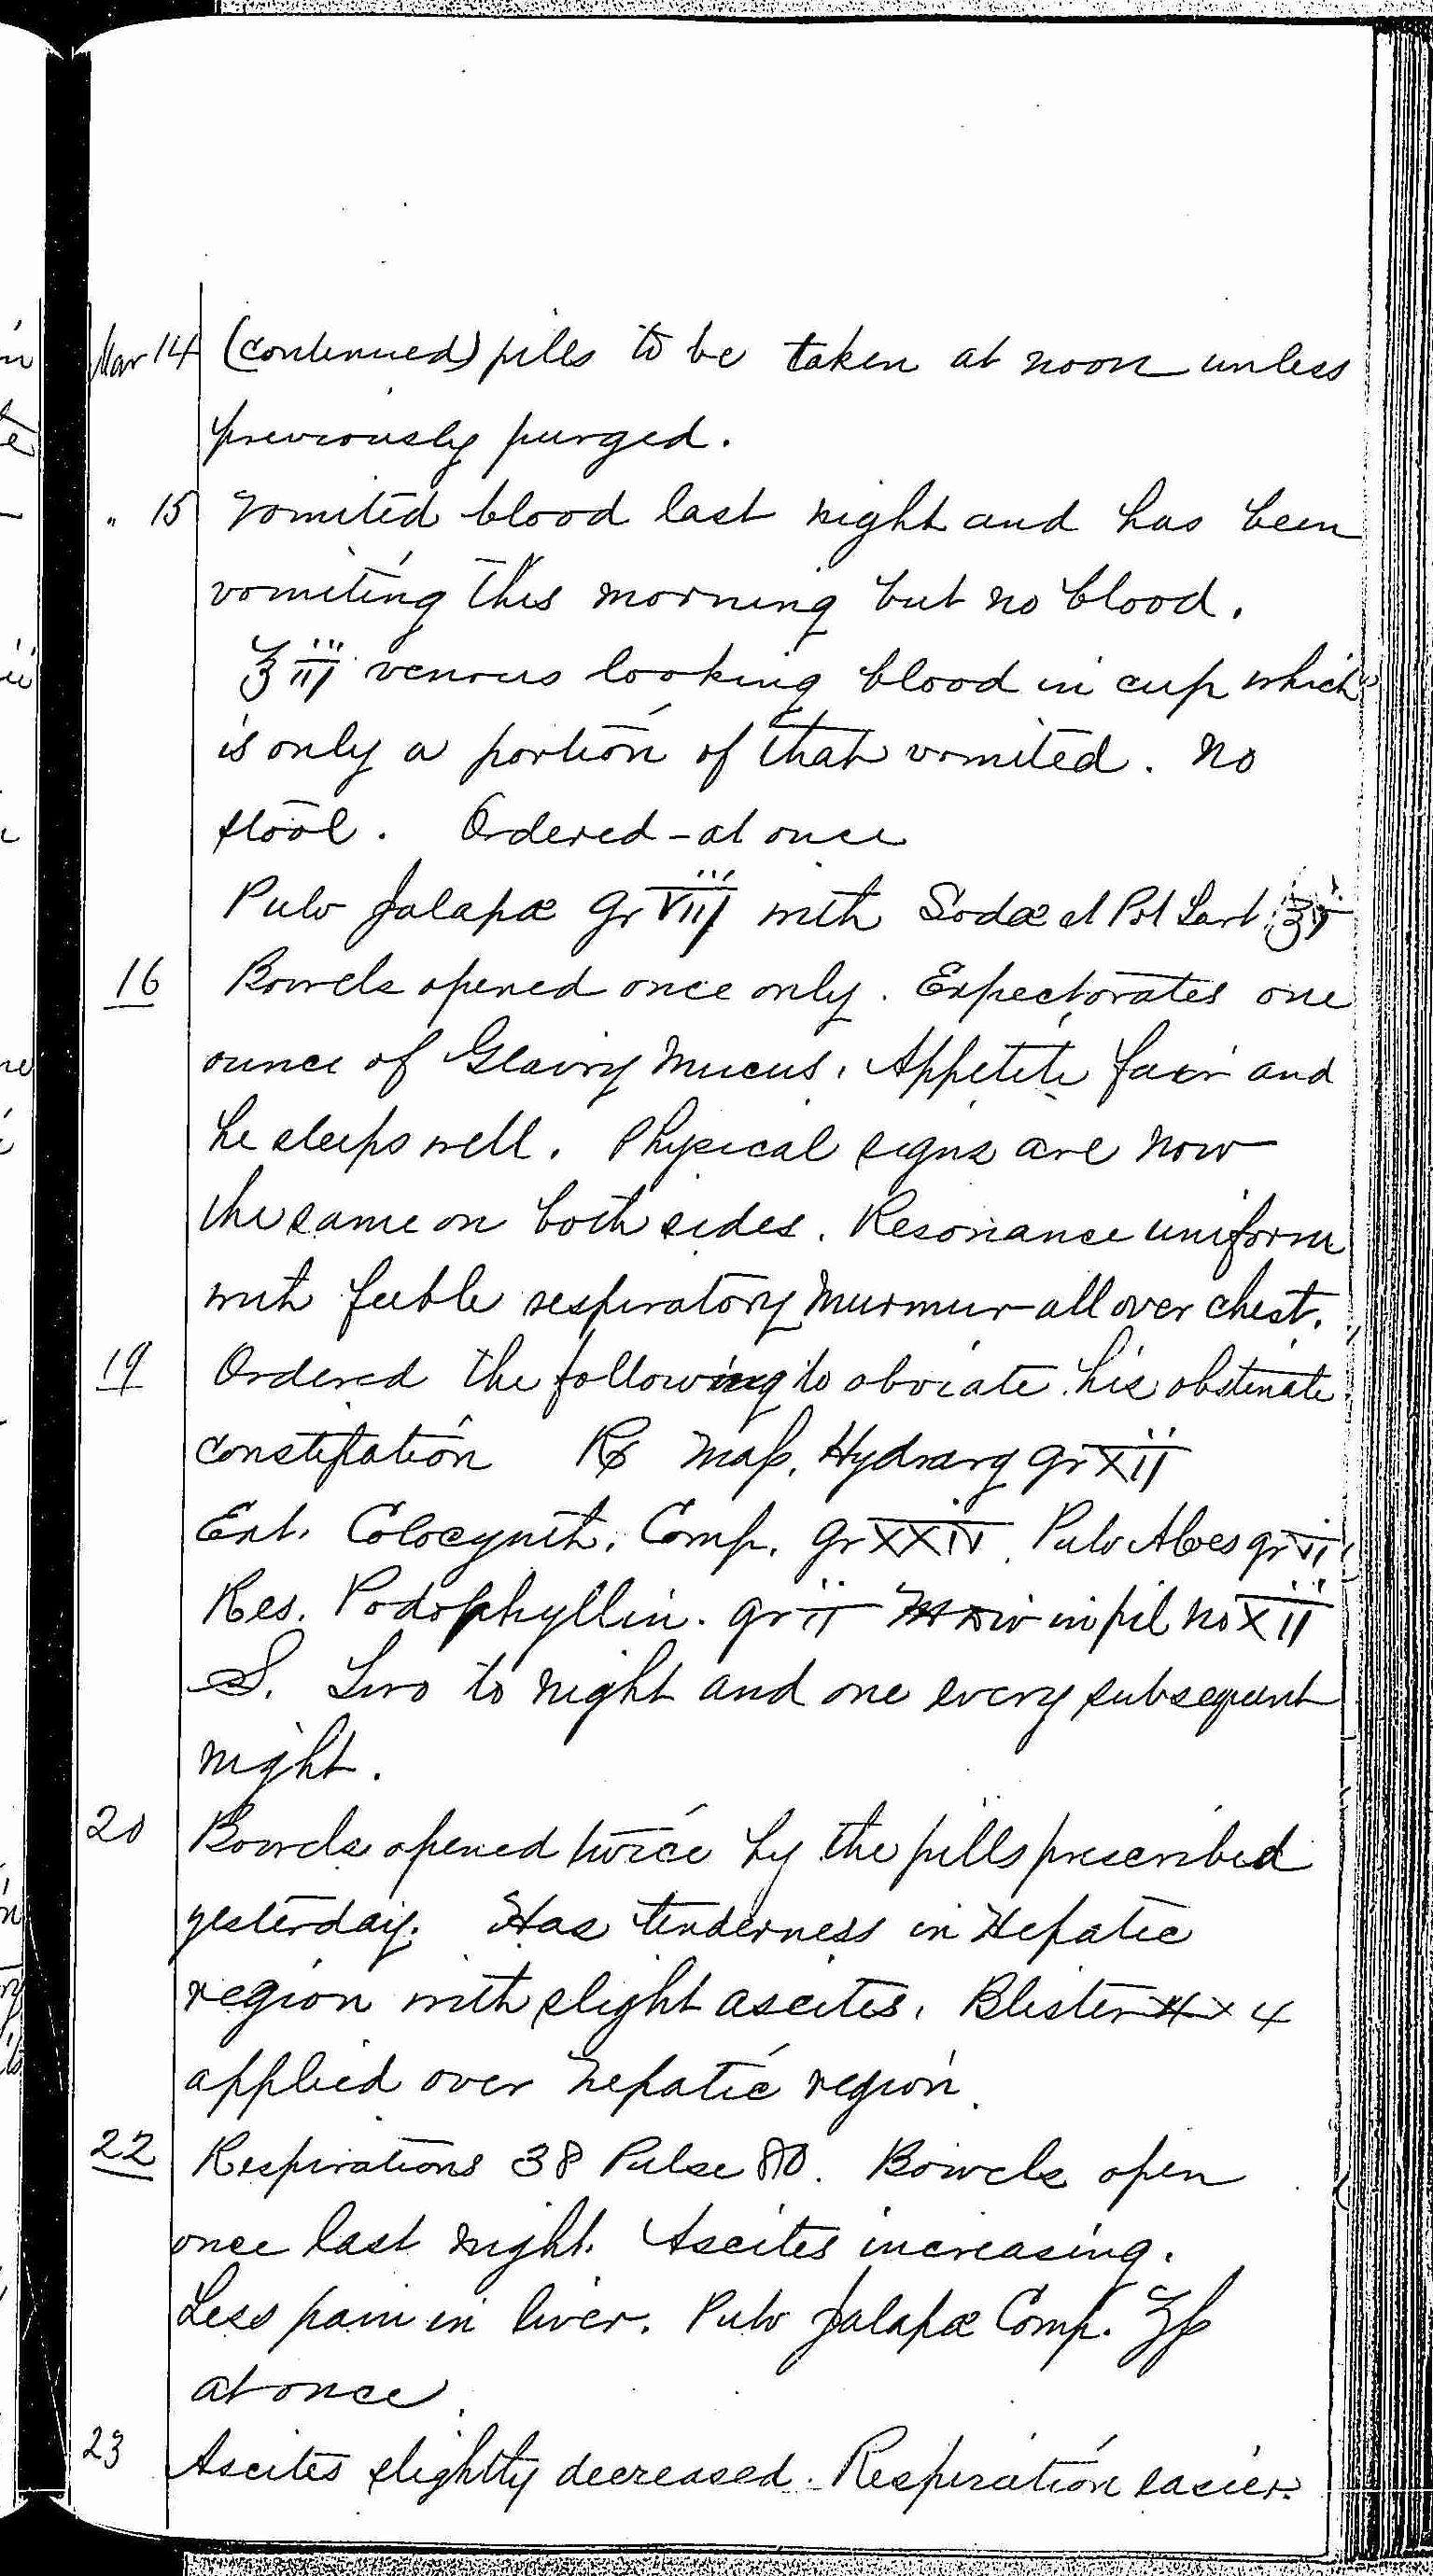 Mar 14 (continued) pills to be taken at noon unless
previously purged.
" 15 Vomited blood last night and has been
vomiting this morning but no blood.
℥iii venous looking blood in cup which
is only a portion of that vomited. No
stool. Ordered - at once
Pulv Jalapæ gr viii with Sodæ et Pot Tart
16 Bowels opened once only. Expectorates one
ounce of Glairy Mucus. Appetite fair and
he sleeps well. Physical signs are now
the same on both sides. Resonance uniform
with feeble respiratory murmur all over chest.
19 Ordered the following to obviate his obstinate
constipation Rx Mass. Hydrarg gr xii
Ext. Colocynth. Comp. gr xxiv. Pulv Aloes gr vi
Res. Podophyllin. gr ii M div in pil no xii
S. Two to night and one every subsequent
night.
20 Bowels opened twice by the pills prescribed
yesterday. Has tenderness in Hepatic
region with slight ascites. Blister 4 x 4
applied over hepatic region.
22 Respirations 38 Pulse 80. Bowels open
once last night. Ascites increasing.
Less pain in liver. Pulv Jalapæ Comp. ʒß
at once.
23 Ascites slightly decreased. Respiration easier.